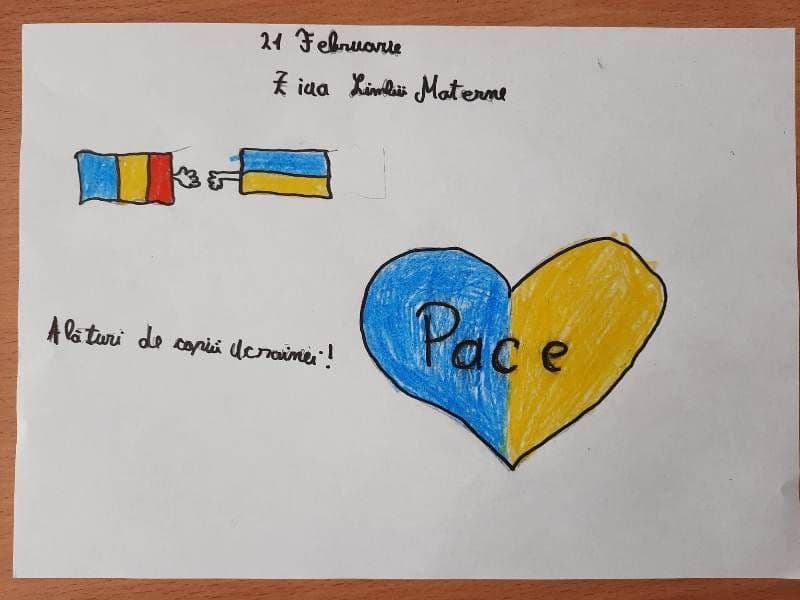 21 Februarie
Ziua Limbii Materne
Alături de copiii Ucrainei!
Pace